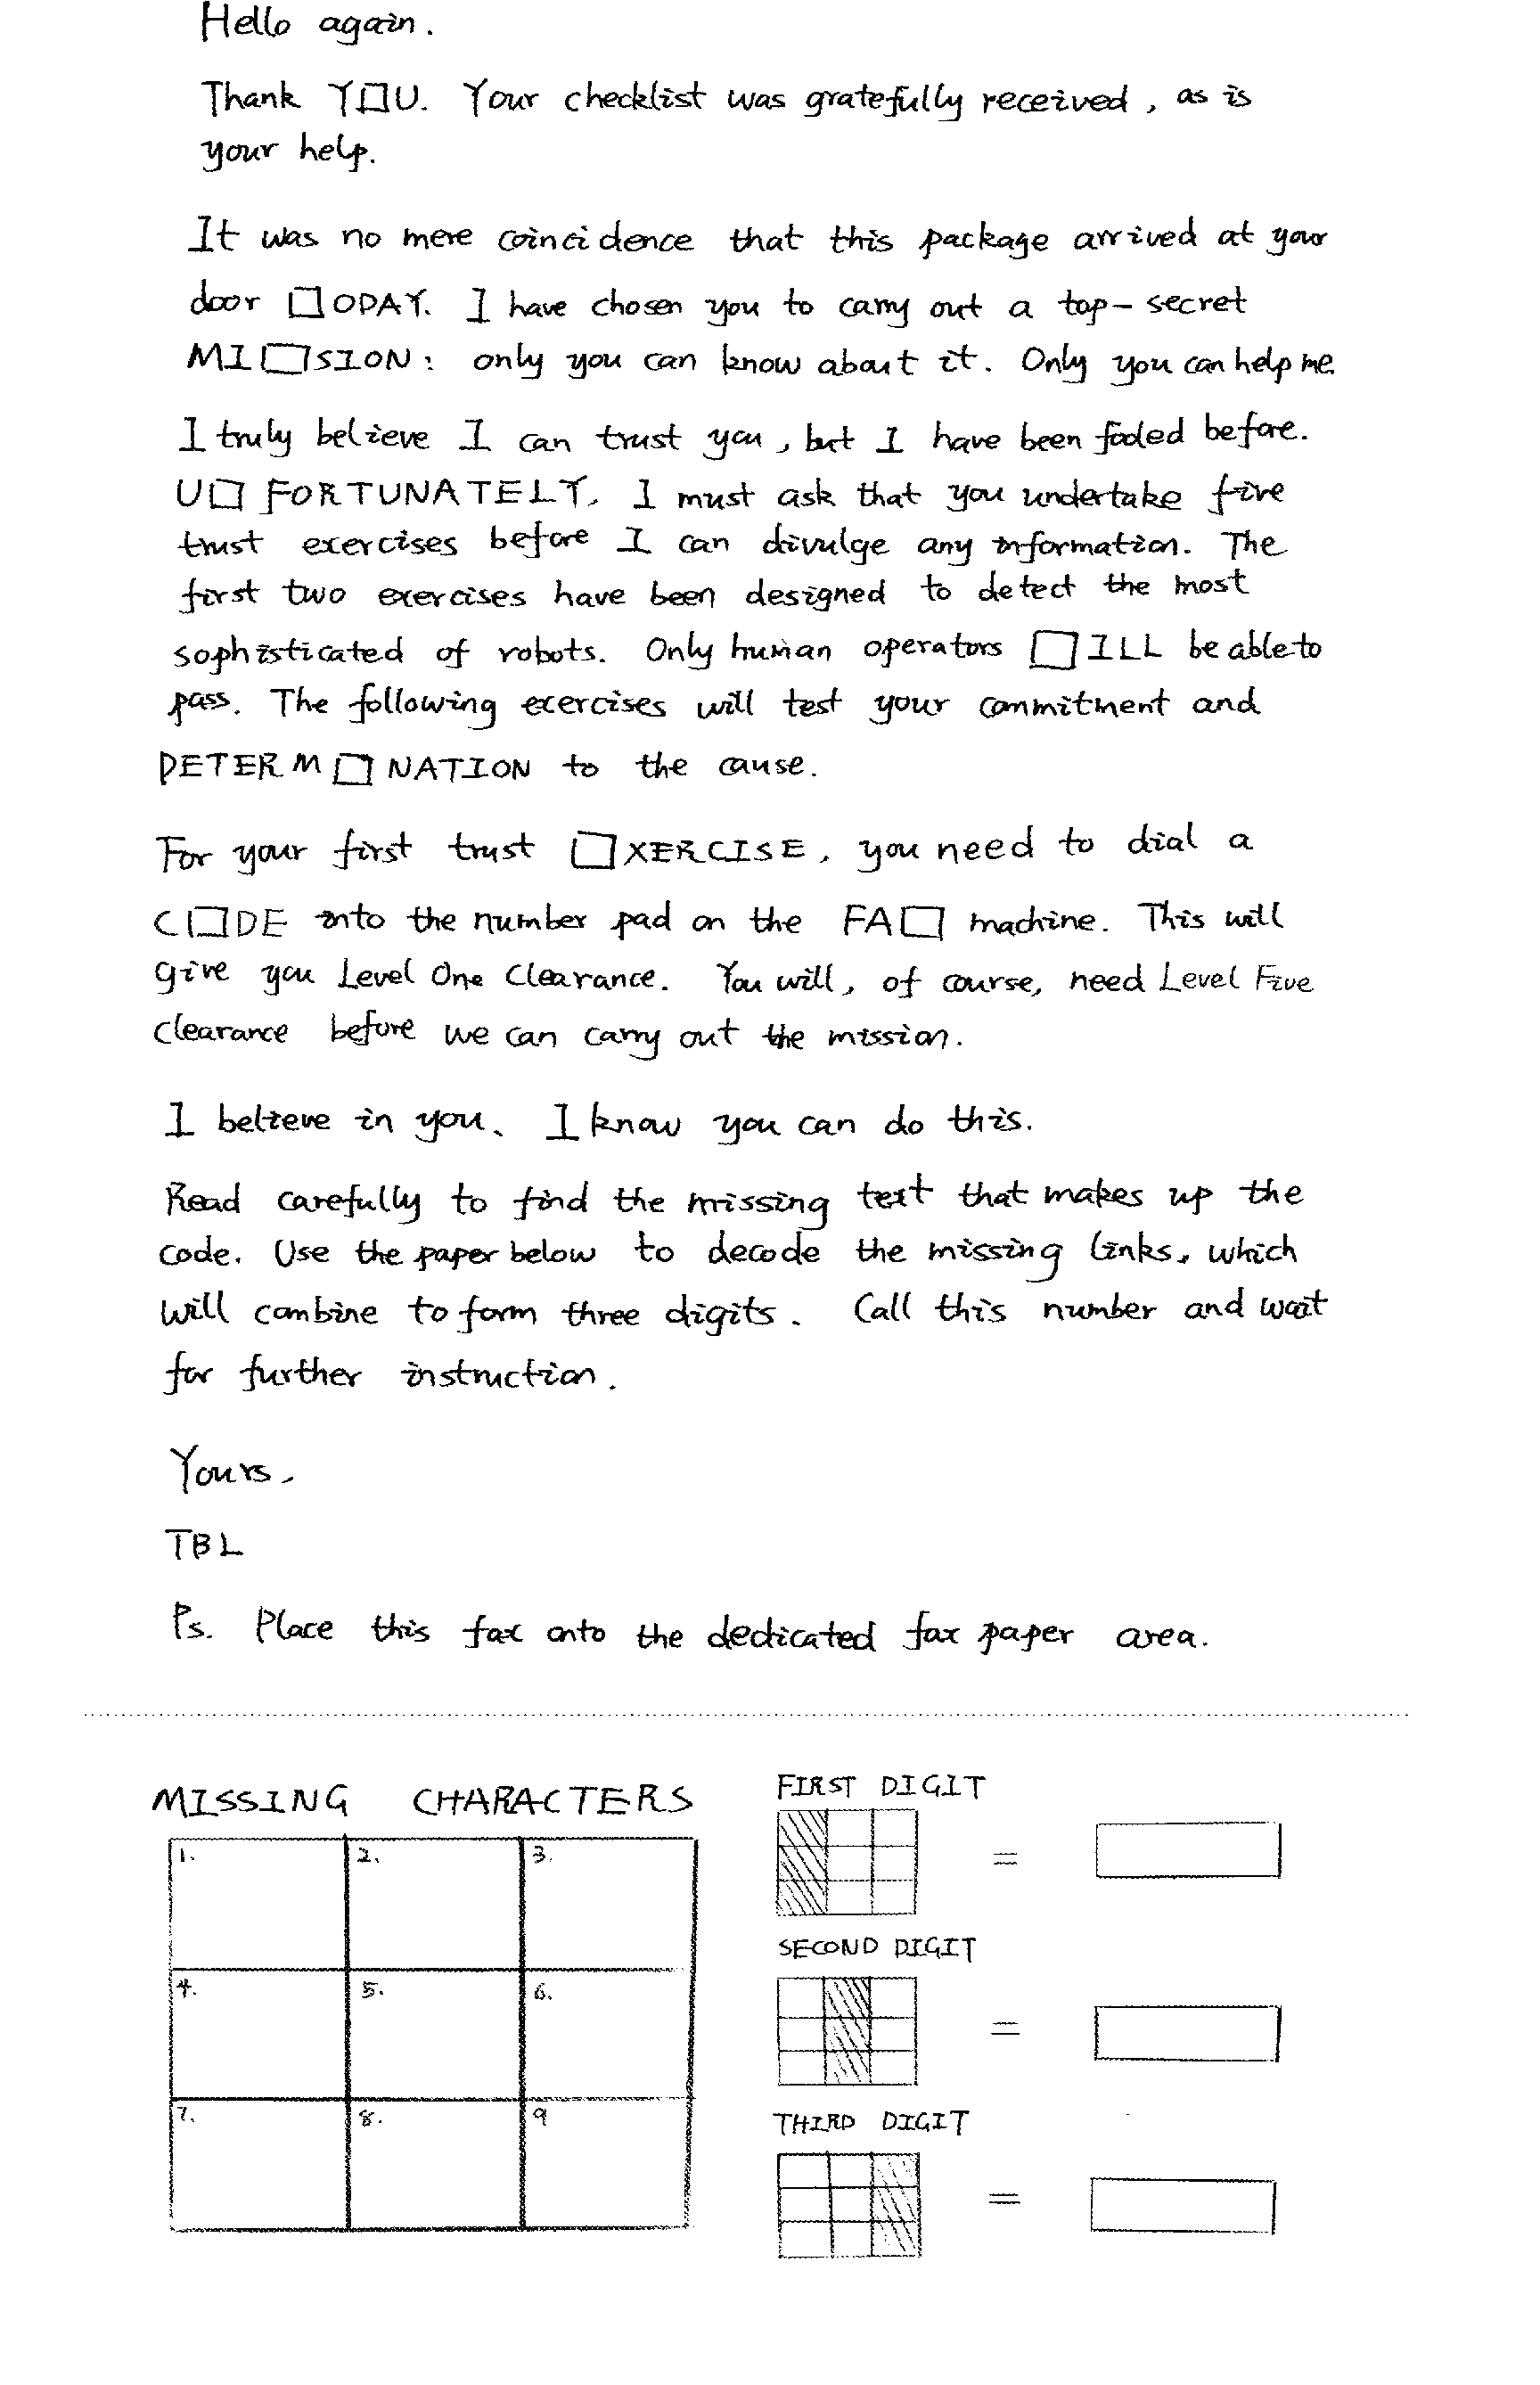 Hello again.
Thank Y□U. Your checklist was gratefully received, as is
your help.
It was no mere coincidence that this package arrived at your
door □ODAY. I have chosen you to carry out a top-secret
MI□SION: only you can know about it. Only you can help me.
I truly believe I can trust you, but I have been fooled before.
U□FORTUNATELY, I must ask that you undertake five
trust exercises before I can divulge any information. The
first two exercises have been designed to detect the most
sophisticated of robots. Only human operators □ILL be able to
pass. The following exercises will test your commitment and
DETERM□NATION to the cause.
For your first trust □XERCISE, you need to dial a
C□DE into the number pad on the FA□ machine. This will
give you Level One Clearance. You will, of course, need Level Five
Clearance before we can carry out the mission.
I believe in you. I know you can do this.
Read carefully to find the missing text that makes up the
code. Use the paper below to decode the missing links, which
will combine to form three digits. Call this number and wait
for further instruction.
Yours,
TBL
Ps. Place this fax onto the dedicated fax paper area.
MISSING CHARACTERS
1. 2. 3.
4. 5. 6.
7. 8. 9
FIRST DIGIT
=
SECOND DIGIT
=
THIRD DIGIT
=